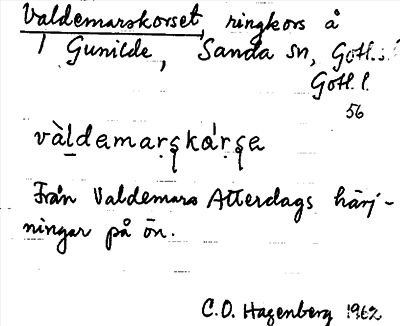 Valdemarskorset, ringkors å
Gunilde, Sanda sn, Gotl.
Gotl. l.
56
vàldemarskársa
Från Valdemars Atterdags härj-
ningar på ön.
C.O. Hagenberg 1962